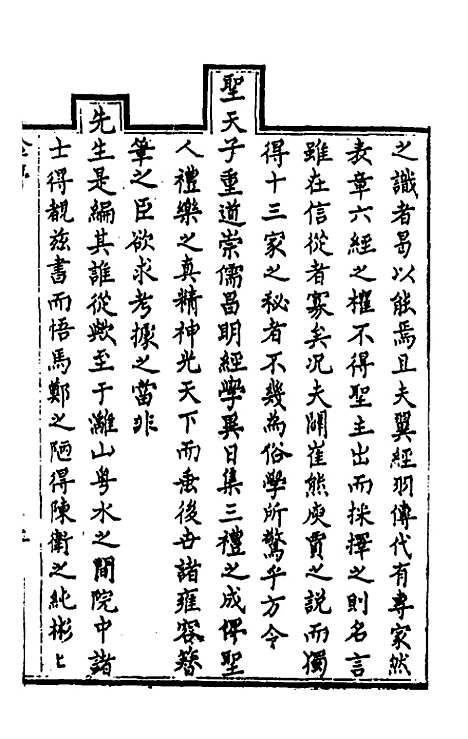 之識者曷以能焉且夫翼經羽傳代有專家然
表章六經之權不得聖主出而採擇之則名言
雖在信從者寡矣况夫闢崔熊庾賈之說而獨
得十三家之秘者不幾為俗學所驚乎方今
聖天子重道崇儒昌明經學異日集三禮之成俾聖
人禮樂之真精神光天下而垂後世諸雍容簪
筆之臣欲求考據之當非
先生是編其誰從歟至于灕山粤水之間院中諸
士得覩兹書而悟馬鄭之陋得陳衛之純彬〻